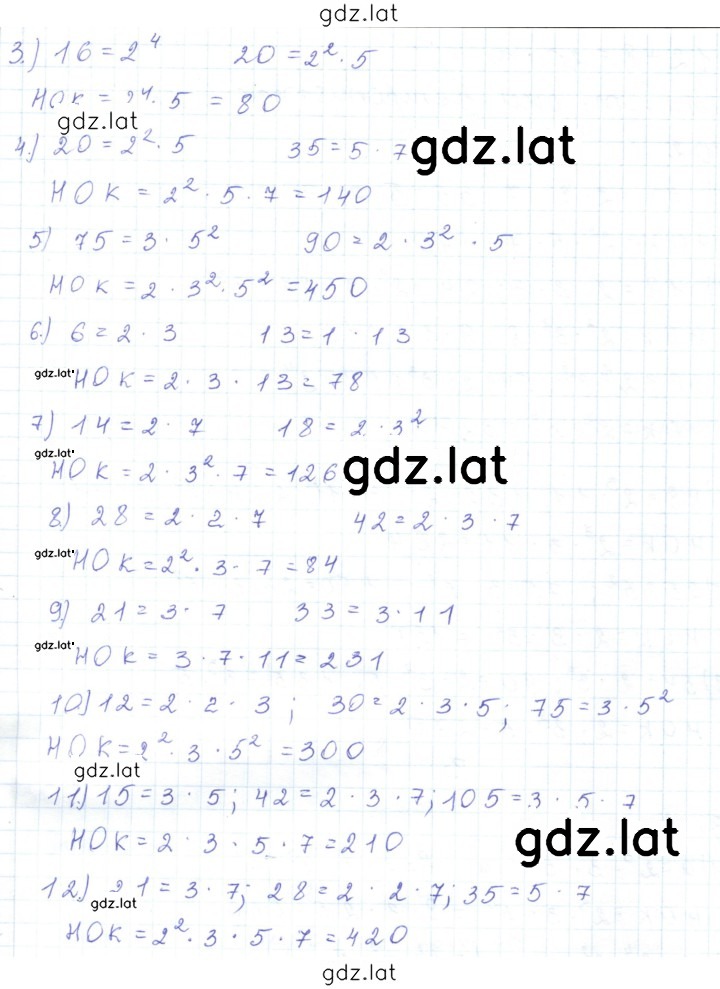 gdz.lat
3.) 16 = 2⁴ 20 = 2² · 5
НОК = 2⁴ · 5 = 80
gdz.lat
4.) 20 = 2² · 5 35 = 5 · 7 gdz.lat
НОК = 2² · 5 · 7 = 140
5) 75 = 3 · 5² 90 = 2 · 3² · 5
НОК = 2 · 3² · 5² = 450
6.) 6 = 2 · 3 13 = 1 · 13
gdz.lat НОК = 2 · 3 · 13 = 78
7) 14 = 2 · 7 18 = 2 · 3²
gdz.lat
НОК = 2 · 3² · 7 = 126 gdz.lat
8.) 28 = 2 · 2 · 7 42 = 2 · 3 · 7
gdz.lat НОК = 2² · 3 · 7 = 84
9) 21 = 3 · 7 33 = 3 · 11
gdz.lat НОК = 3 · 7 · 11 = 231
10) 12 = 2 · 2 · 3 ; 30 = 2 · 3 · 5 ; 75 = 3 · 5²
НОК = 2² · 3 · 5² = 300
gdz.lat
11.) 15 = 3 · 5 ; 42 = 2 · 3 · 7 ; 105 = 3 · 5 · 7
НОК = 2 · 3 · 5 · 7 = 210 gdz.lat
12.) 21 = 3 · 7 ; 28 = 2 · 2 · 7 ; 35 = 5 · 7
gdz.lat
НОК = 2² · 3 · 5 · 7 = 420
gdz.lat